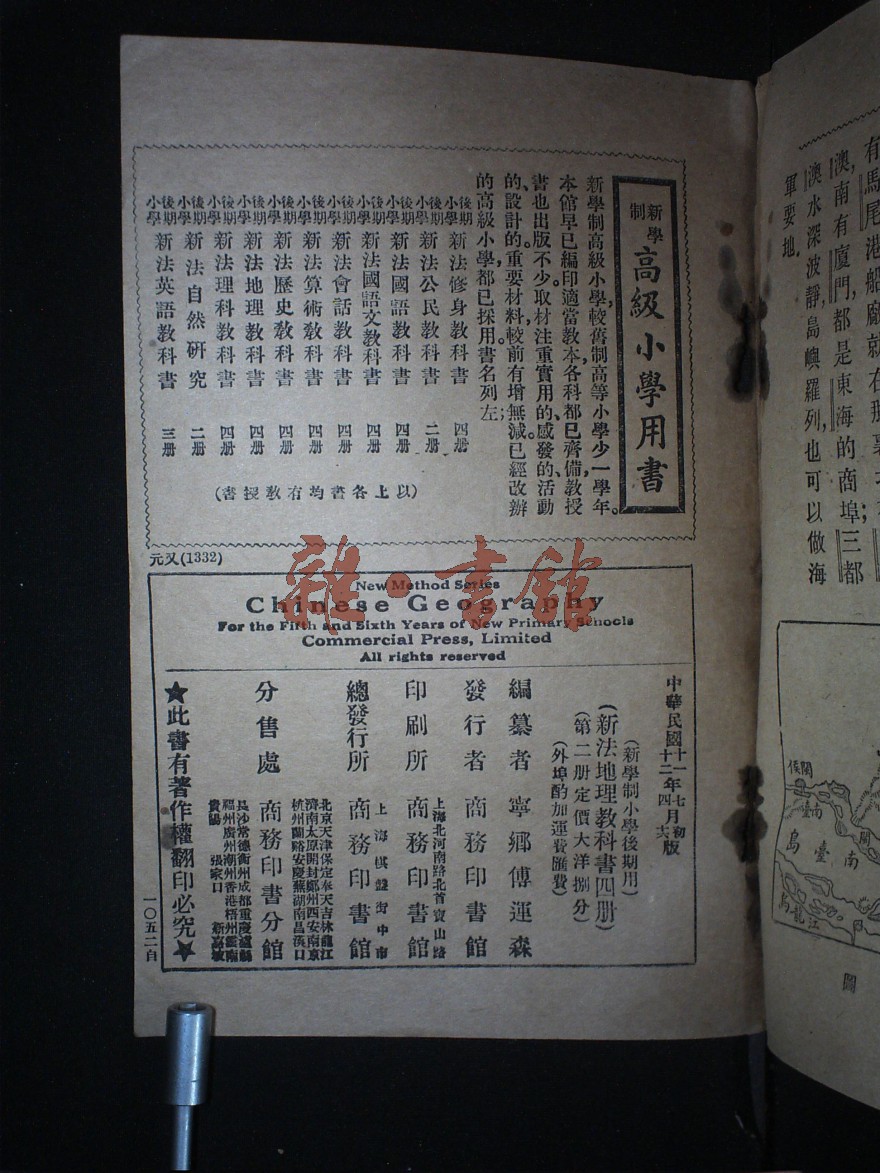 新學制
高級小學用書
新學制高級小學,較舊制高等小學少一學年。
本館早已編印適當教本,各科都已齊備,教授
書也出版不少。取材注重實用的、感發的、活動
的、設計的。重要材料,較前有增無減。已經改辦
的高級小學,都已採用。書名列左;
後期小學 新法修身教科書 四册
後期小學 新法公民教科書 二册
後期小學 新法國語教科書 四册
後期小學 新法國語文教科書 四册
後期小學 新法會話教科書 四册
後期小學 新法算術教科書 四册
後期小學 新法歷史教科書 四册
後期小學 新法地理教科書 四册
後期小學 新法理科教科書 四册
後期小學 新法自然研究 二册
後期小學 新法英語教科書 三册
(以上各書均有教授書)
元又(1332)
New Method Series
Chinese Geography
For the Fifth and Sixth Years of New Primary Schools
Commercial Press, Limited
All rights reserved
中華民國十一年七月初版
十二年四月六版
(新學制小學後期用)
(新法地理教科書四册)
(第二册定價大洋捌分)
(外埠酌加運費匯費)
編纂者 寧鄉傅運森
發行者 商務印書館
印刷所 上海北河南路北首寶山路 商務印書館
總發行所 上海棋盤街中市 商務印書館
分售處 北京天津保定奉天吉林龍江
濟南太原開封鄭州西安南京
杭州蘭谿安慶蕪湖南昌漢口
商務印書分館
長沙常德衡州成都重慶瀘縣
福州廣州潮州香港梧州雲南
貴陽 張家口 新嘉坡
★此書有著作權翻印必究★
一〇五二自
雜·書館
有馬尾港,船廠就在那裏
澳,南有廈門,都是東海的商埠;三都
澳水深波靜,島嶼羅列,也可以做海
軍要地。
閩侯
南臺
南臺島
江龍烏
圖